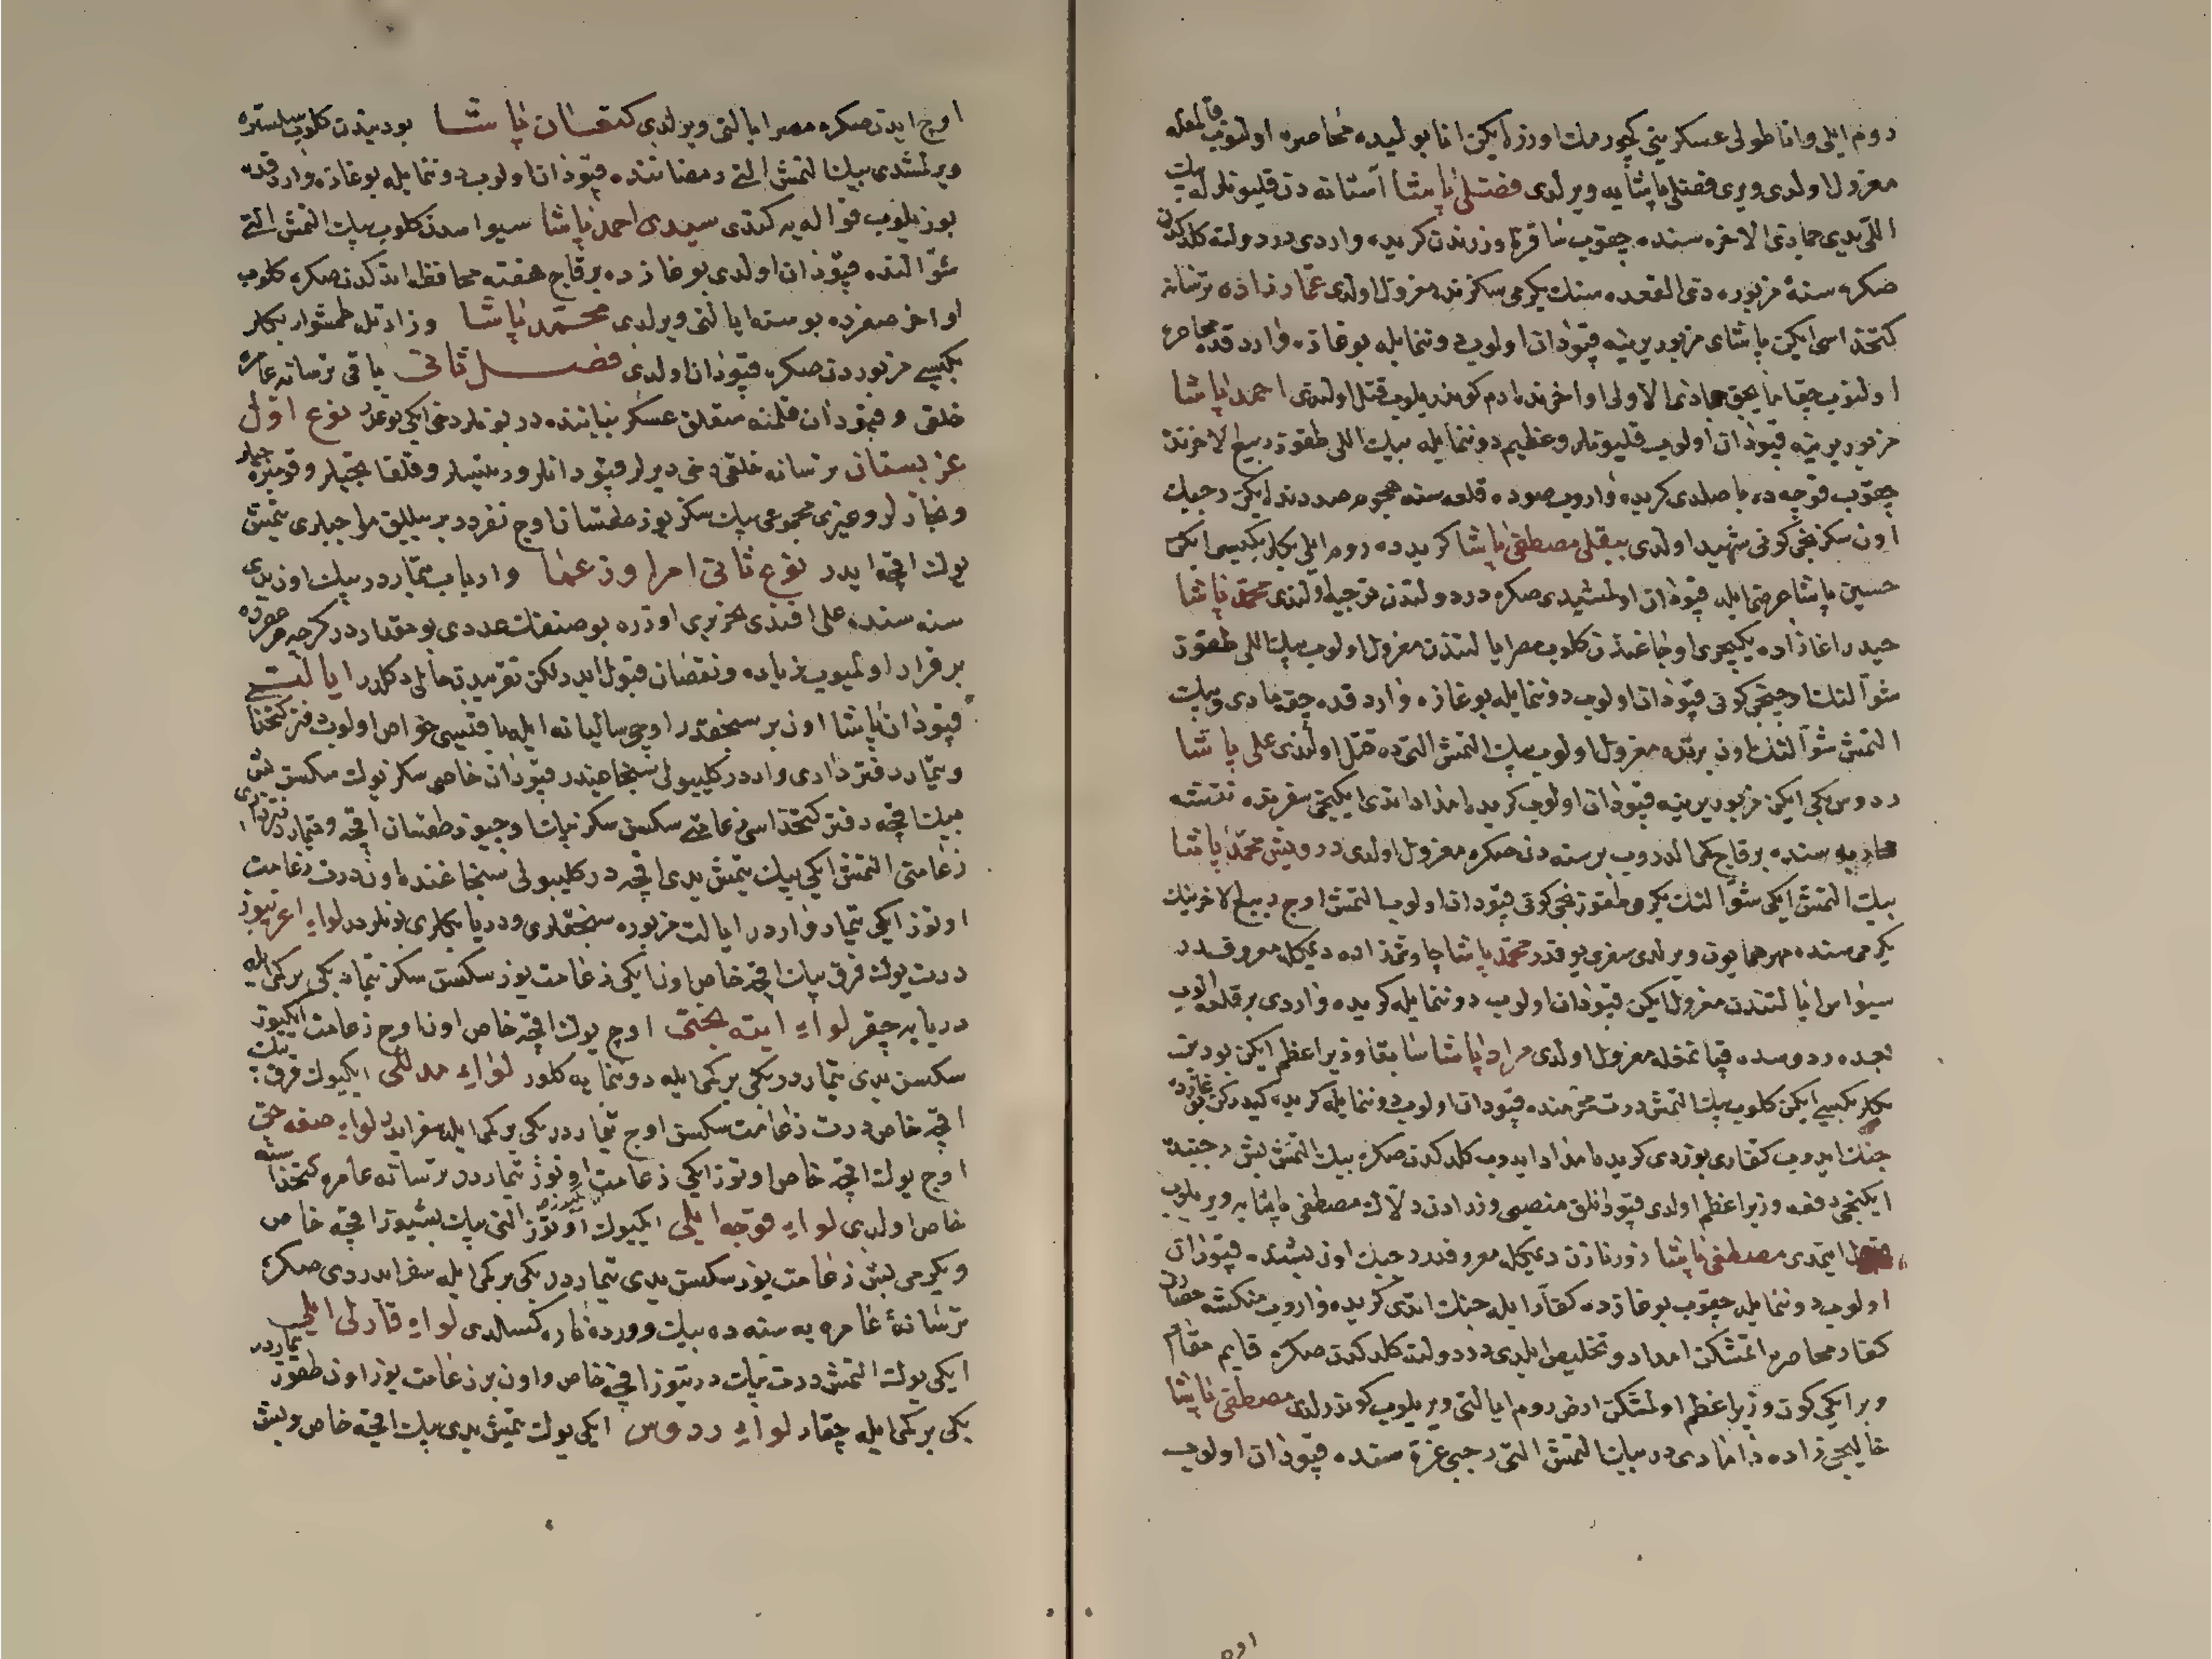 روم ايلى و اناطولى عسكرينى كچورمك اوزره ايكن انابوليده محاصره اولنوب قالمغله
معزول اولدى ويرى فضلى پاشايه ويرلدى فضلى پاشا آستانه دن قليونلرله بيك
اللى يدى جمادى الاخره سنده چيقوب ساقز اوزرندن كريده واردى در دولته كلدكدن
صكره سنهٔ مزبوره ذى القعده سنك يكرمى سكزنده معزول اولدى عمارزاده ترسانه
كتخداسى ايكن پاشاى مزبور يرينه قپودان اولوب دوننمايله بوغازه واردقده محاصره
اولنوب چقامايجق جمادى الاولى اواخرنده آدم كوندريلوب قتل اولندى احمد پاشا
مزبور يرينه قپودان اولوب قليونلر و عظيم دوننمايله بيك اللى طقوز ربيع الاخرنده
چيقوب فوچه ده باصلدى كريده واروب صوده قلعه سنه هجوم صددنده ايكن رجبك
اون سكزنجى كونى شهيد اولدى بيقلى مصطفى پاشا كريده ده روم ايلى بكلربكيسى ايكن
حسين پاشا عرضى ايله قپودان اولمشيدى صكره در دولتدن توجيه اولندى محمد پاشا
حيدر اغازاده يكيچرى اوجاغندن كلوب مصر ايالتندن معزول اولوب بيك اللى طقوز
شوالنك اوچنجى كونى قپودان اولوب دوننمايله بوغازه واردقده چقمادى و بيك
التمش شوالنك اون برنده معزول اولوب بيك التمش التيده قتل اولندى على پاشا
ردوس بكى ايكن مزبور يرينه قپودان اولوب كريده امداد ايتدى ايكنجى سفرنده
محاربه سنده برقاج كمى الدروب بر سنه دن صكره معزول اولدى درويش محمد پاشا
بيك التمش ايكى شوالنك يكرمى طقوزنجى كونى قپودان اولوب التمش اوچ ربيع الاخرينك
يكرمى سنده مهر همايون ويرلدى سفرى يوقدر محمد پاشا چاوشزاده ديمكله معروفدر
سيواس ايالتندن معزول ايكن قپودان اولوب دوننمايله كريده واردى بر قلعه الوب
بعده ردوسده قپانمغله معزول اولدى مراد پاشا سابقا وزير اعظم ايكن بودين
بكلربكيسى ايكن كلوب بيك التمش درت محرمنده قپودان اولوب دوننمايله كريده كيدركن بوغازده
جنك ايدوب كفارى بوزدى كريده امداد ايدوب كلدكدن صكره بيك التمش بش رجبنده
ايكنجى دفعه وزير اعظم اولدى قپودانلق منصبى وزرادن دلاك مصطفى پاشايه ويريلوب
ايتمدى مصطفى پاشا زورنازن ديمكله معروفدر رجبك اون بشنده قپودان
اولوب دوننمايله چيقوب بوغازده كفار ايله جنك ايتدى كريده واروب منكشه حصارن
كفار محاصره ايتمشكن امداد و تخليص ايلدى در دولته كلدكدن صكره قايم مقام
و بر ايكى كون وزير اعظم اولمشكن ارض روم ايالتى ويريلوب كوندرلدى مصطفى پاشا
خاليجى زاده دامادى در بيك التمش التى رجبى غره سنده قپودان اولوب
اوچ ايدن صكره مصر ايالتى ويرلدى كنعان پاشا بوديندن كلوب سلستره
ويرلمشدى بيك التمش التى رمضاننده قپودان اولوب دوننمايله بوغازه واردقده
بوزيلوب قواله يه كتدى سيدى احمد پاشا سيواسدن كلوب بيك التمش التى
شوالنده قپودان اولدى بوغازده بر قاج هفته محافظه ايتدكدن صكره كلوب
اواخر صفرده بوسنه ايالتى ويرلدى محمد پاشا وزارتله طمشوار بكلر
بكيسى مزبوردن صكره قپودان اولدى فصل ثانى باقى ترسانه عامره
خلقى و قپودان قلمنه متعلق عسكر بياننده در بونلر دخى ايكى نوعدر نوع اول
عزبستان ترسانه خلقى دخى ديرلر قپودانلر و رئيسلر و قلفاتجيلر و قومبره جيلر
و نجارلر و غيرى مجموعى بيك سكز يوز طقسان اوچ نفردر بر ييللق مواجبلرى يتمش
يوك اقچه ايدر نوع ثانى امرا و زعما و ارباب تيماردر بيك اون يدى
سنه سنده على افندى تحريرى اوزره بو صنفك عددى بو مقداردر كرچه هر عصرده
بر قرار اولميوب زياده و نقصان قبول ايدر لكن تقريبدن خالى دكلدر ايالت
قپودان پاشا اون بر سنجقدر اوچى ساليانه ايله باقيسى خواص اولوب دفتر كتخدا
و تيمار دفتردارى واردر كليبولى سنجاغيدر قپودان خاص سكز يوك سكسن بش
بيك اقچه دفتر كتخداسى زعامتى سكسن سكز بيك اوچيوز طقسان اقچه و تيمار دفتردارى
زعامتى التمش ايكى بيك يتمش يدى اقچه در كليبولى سنجاغنده اون درت زعامت
اوتوز ايكى تيمار واردر ايالت مزبوره سنجقلرى و دريا بكلرى بونلردر لواء اغريبوز
درت يوك قرق بيك اقچه خاص اون ايكى زعامت يوز سكسن سكز تيمار بكى بر كمى ايله
دريايه چقر لواء اينه بختى اوچ يوك اقچه خاص اون اوچ زعامت ايكيوز
سكسن يدى تيماردر بكى بر كمى ايله دوننمايه كلور لواء مدللى ايكيوك قرق بيك
اقچه خاص درت زعامت سكسن اوچ تيماردر بكى بر كمى ايله سفر ايدر لواء صغه جق
اوچ يوك اقچه خاص اوتوز ايكى زعامت اوتوز تيماردر ترسانه عامره كتخداسنه
خاص اولدى لواء قوجه ايلى ايكيوك اوتوز التى بيك بشيوز اقچه خاص
و يكرمى بش زعامت يوز سكسن يدى تيماردر بكى بر كمى ايله سفر ايدردى صكره
ترسانهٔ عامره يه سنه ده بيك كسلدى لواء قارلى ايلى
ايكى يوك التمش درت بيك درتيوز اقچه خاص و اون بر زعامت يوز اون طقوز تيماردر
بكى بر كمى ايله چقار لواء ردوس ايكى يوك يتمش يدى بيك اقچه خاص و بش